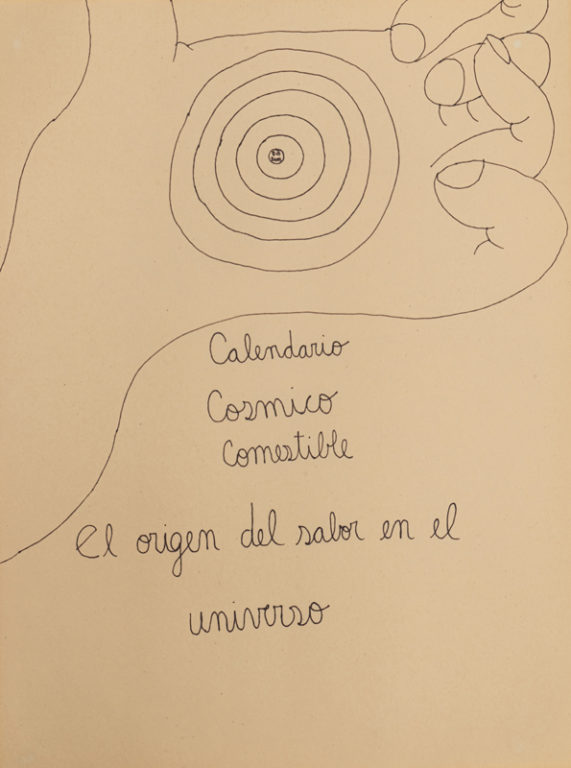 Calendario
Cosmico
Comestible
El origen del sabor en el
universo